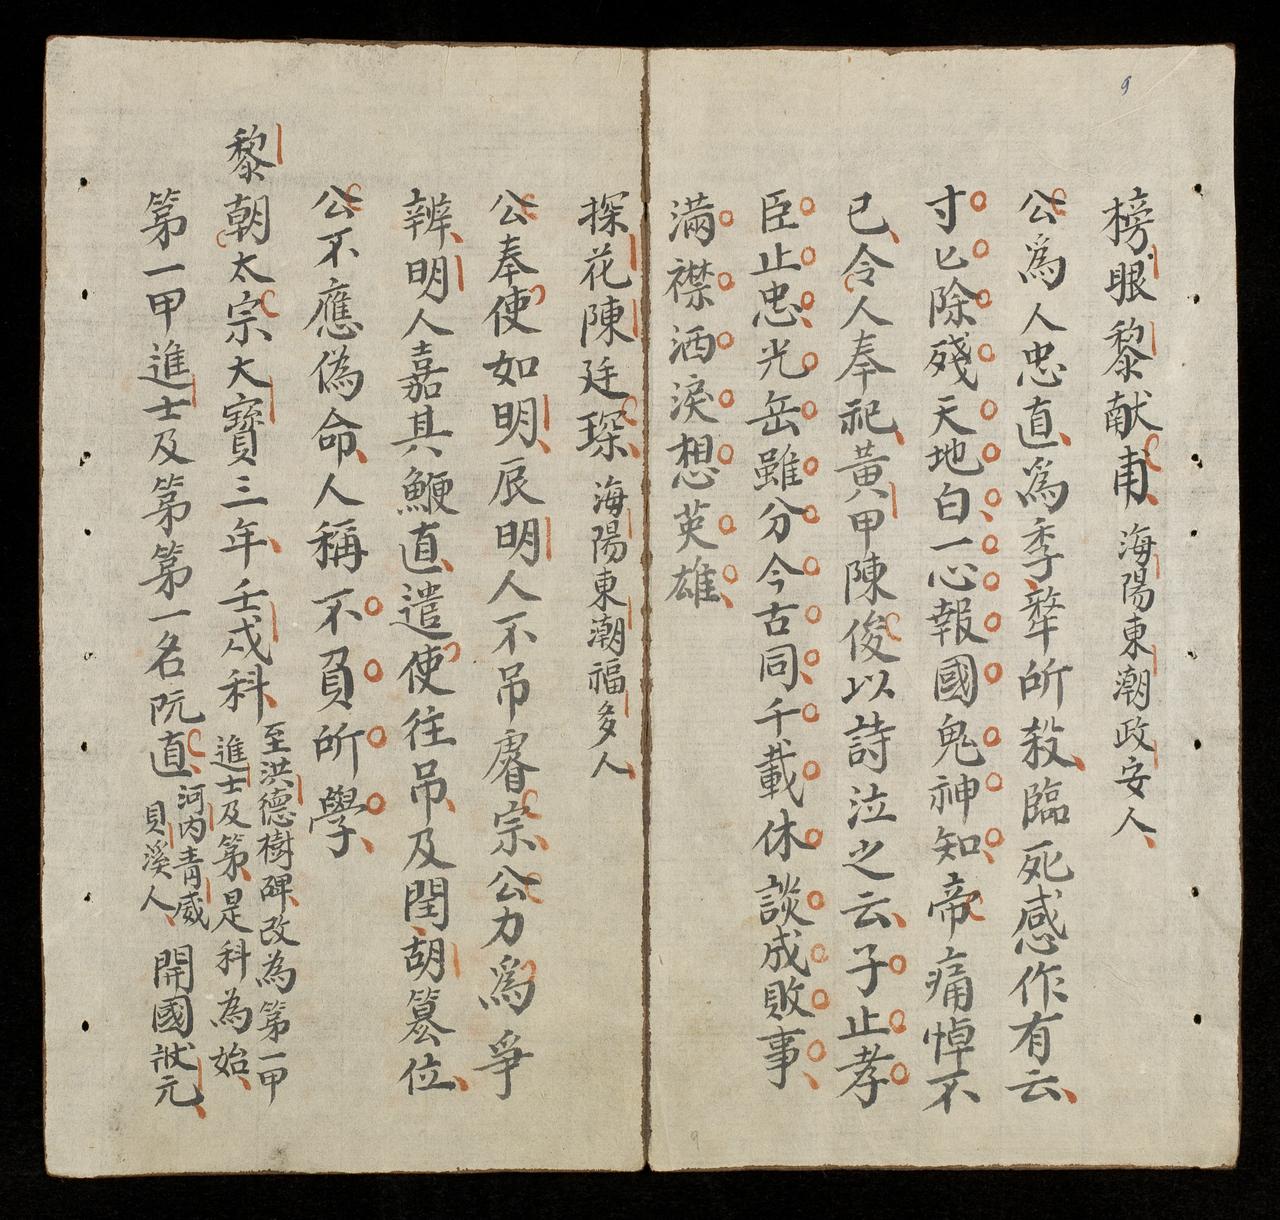 9
榜眼黎献甫海陽東潮政安人
公爲人忠直爲季犛所殺臨死感作有云
寸匕除殘天地白一心報國鬼神知帝痛悼不
已令人奉祀黃甲陳俊以詩泣之云子止孝
臣止忠光岳雖分今古同千載休談成敗事
滿襟洒淚想英雄
9
探花陳廷琛海陽東潮福多人
公奉使如明辰明人不吊睿宗公力爲爭
辨明人嘉其鯁直遣使往吊及閏胡篡位
公不應偽命人稱不負所學
黎朝太宗大寳三年壬戌科至洪德樹碑改為第一甲
進士及第是科為始
第一甲進士及第第一名阮直河内青威
貝溪人開國狀元